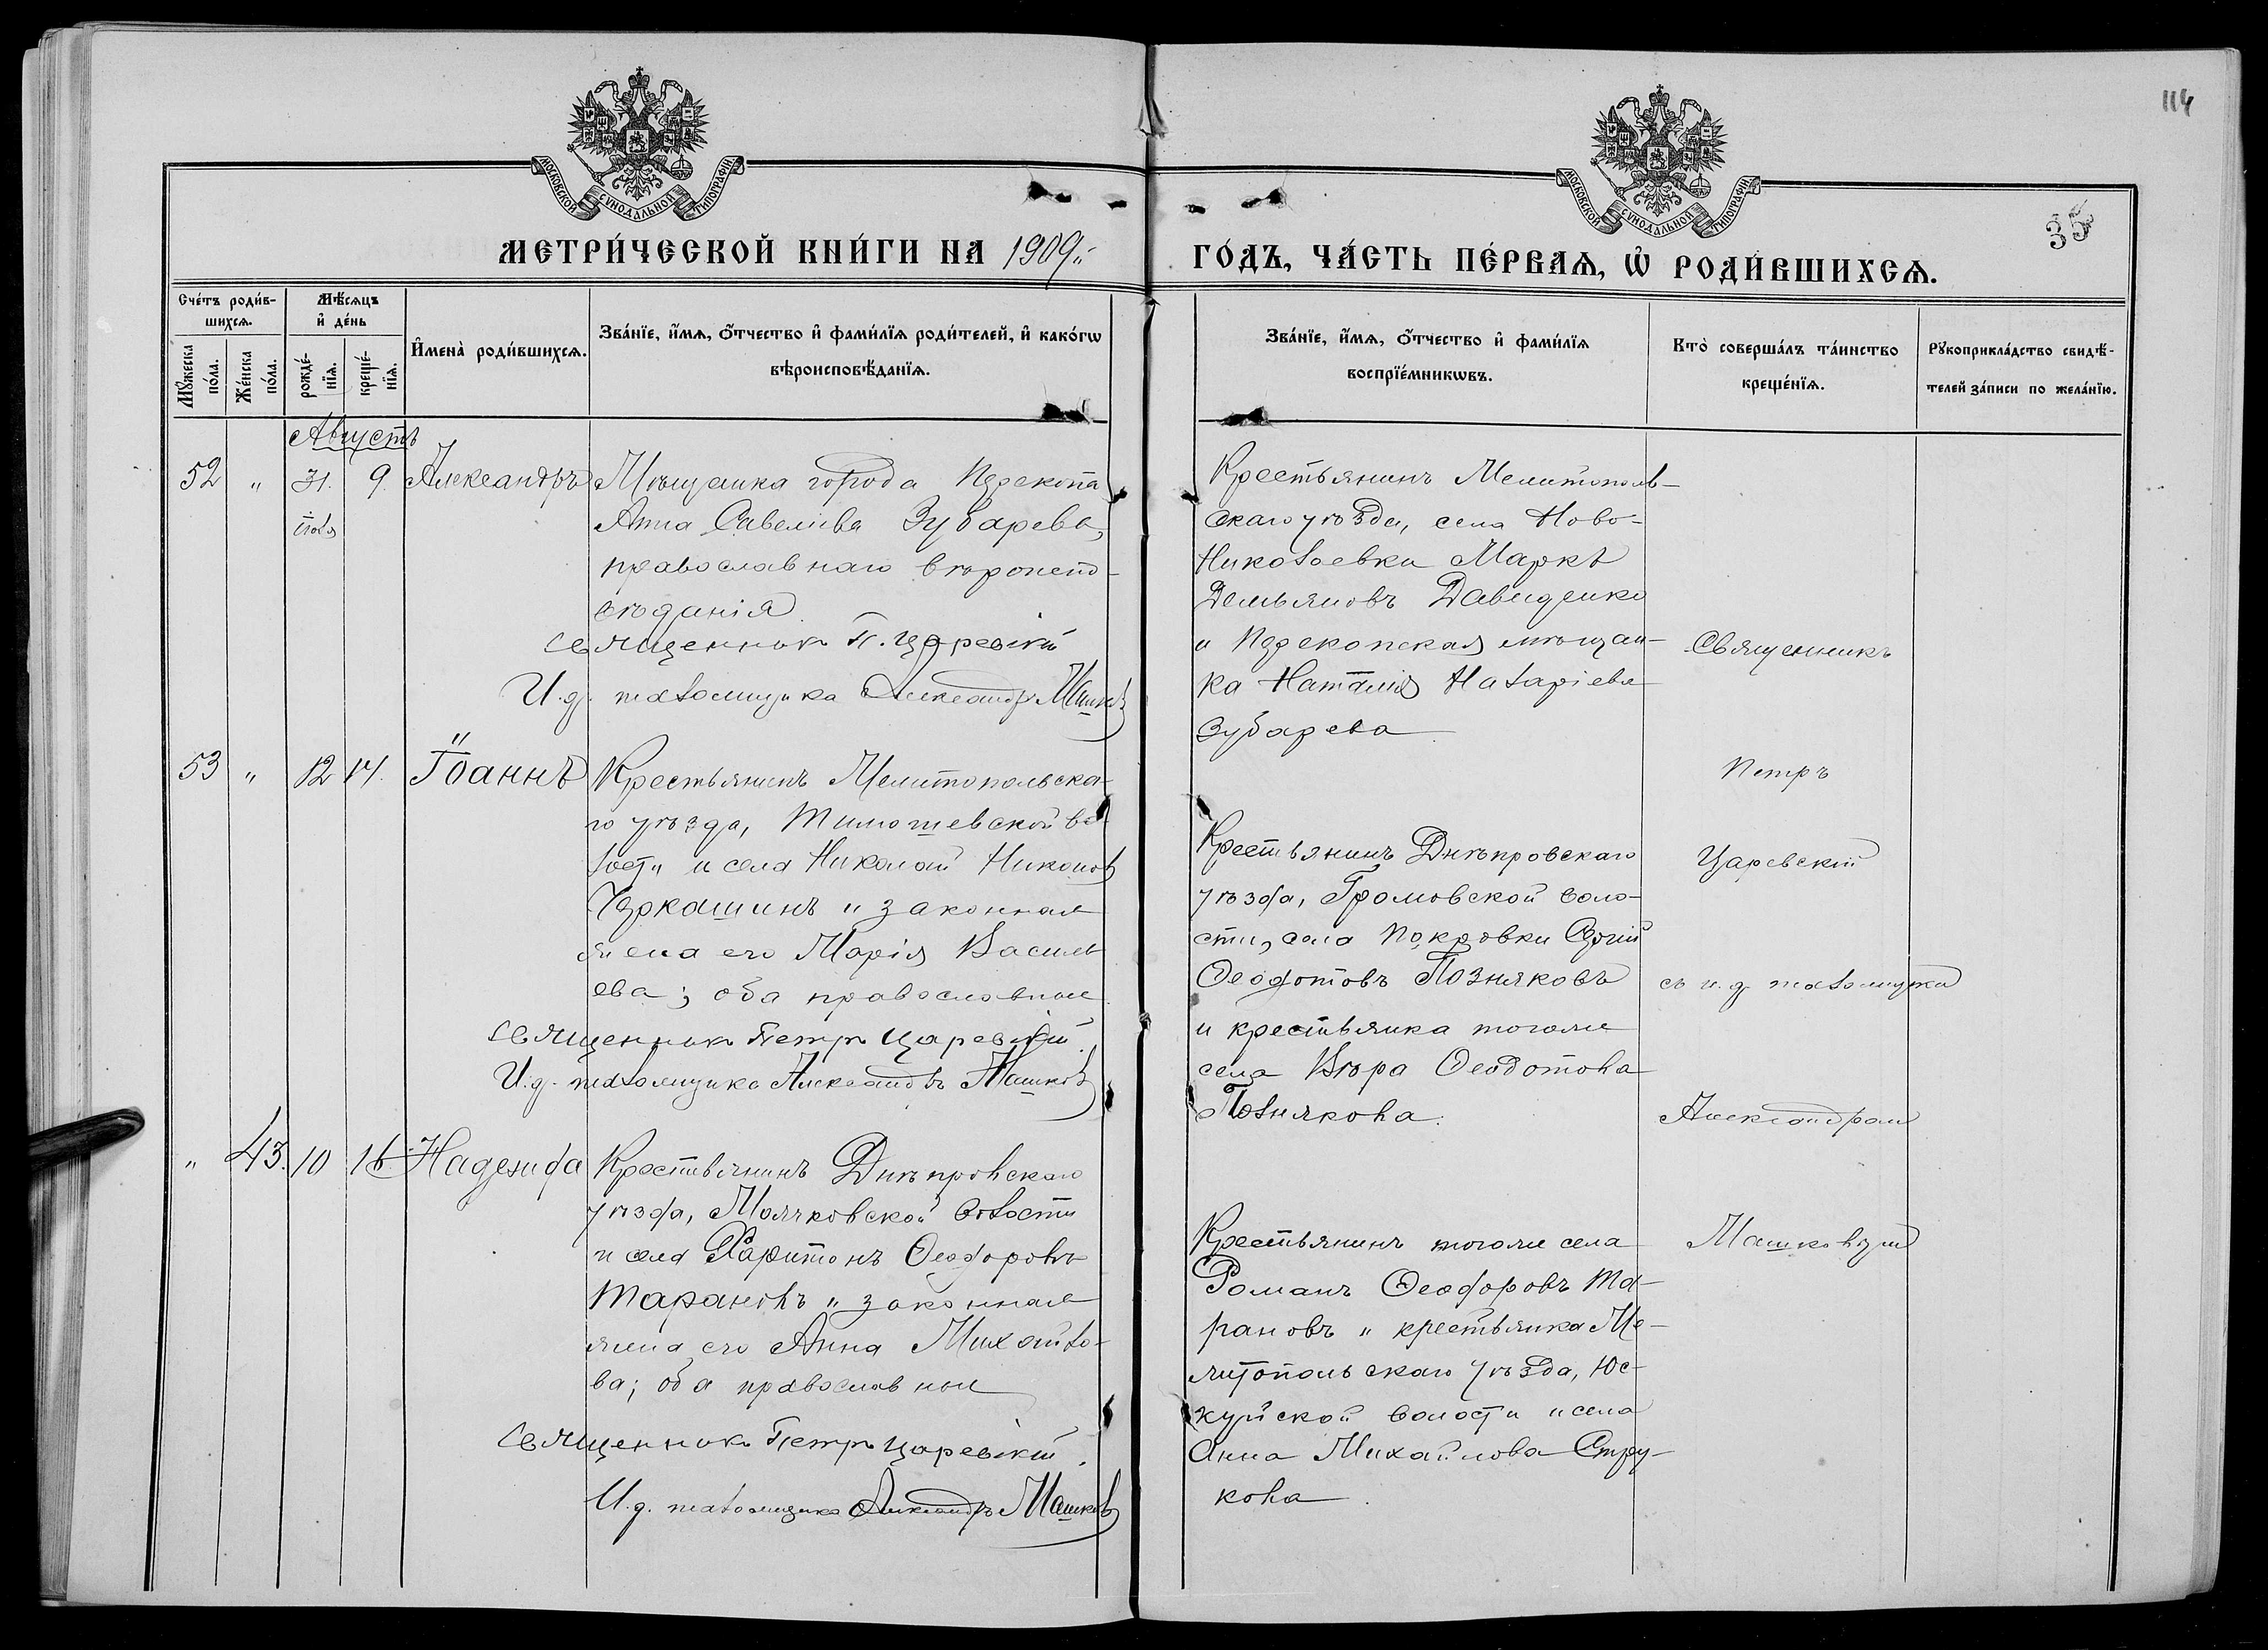 114
35
МОСКОВСКОЙ СУНОДАЛЬНОЙ ТИПОГРАФІИ
МОСКОВСКОЙ СУНОДАЛЬНОЙ ТИПОГРАФІИ
МЕТРИ́ЧЕСКОЙ КНИ́ГИ НА 1909 г.
ГО́ДЪ, ЧА́СТЬ ПЕ́РВАѦ, Ѡ҆ РОДИ́ВШИХСѦ.
Сче́тъ роди́в-
шихсѧ.
Мꙋ́жеска по́ла.
Же́нска по́ла.
Мѣ́сѧцъ
и҆ де́нь
рожде́-нїѧ.
креще́-нїѧ.
И҆мена̀ роди́вшихсѧ.
Зва́нїе, и҆́мѧ, ѻ҆́тчество и҆ фами́лїѧ роди́телей, и҆ како́гѡ
вѣроисповѣ́данїѧ.
Зва́нїе, и҆́мѧ, ѻ҆́тчество и҆ фами́лїѧ
воспрїе́мникѡвъ.
Кто̀ соверша́лъ та́инство
креще́нїѧ.
Рꙋкоприкла́дство свидѣ́-
телей за́писи по жела́нїю.
Августъ
52 " 31. 9. Александръ
іюля
Мѣщанка города Перекопа
Анна Савелiева Зубарева,
православнаго вѣроиспо-
вѣданія.
Священник П. Царевскій
И. д. псаломщика Александръ Машковъ
Крестьянинъ Мелитополь-
скаго уѣзда, села Ново-
Николаевки Маркъ
Демьяновъ Давиденко
и Перекопская мѣщан-
ка Наталія Назаріева
Зубарева
53 " 12 14. Іоаннъ
Крестьянинъ Мелитопольска-
го уѣзда, Тимошевской во-
лости и села Николай Никоновъ
Черкашинъ и законная
жена его Марія Василь-
ева; оба православные.
Священник Петръ Царевскій.
И. д. псаломщика Александръ Машковъ
Крестьянинъ Днѣпровскаго
уѣзда, Громовской воло-
сти, села Покровки Сергій
Ѳеодотовъ Позняковъ
и крестьянка тогоже
села Вѣра Ѳеодотова
Познякова.
" 43. 10 16 Надежда
Крестьянинъ Днѣпровскаго
уѣзда, Маячковской волости
и села Харитонъ Ѳеодоровъ
Тарановъ и законная
жена его Анна Михайло-
ва; оба православные
Священник Петръ Царевскій.
И. д. псаломщика Александръ Машковъ
Крестьянинъ тогоже села
Романъ Ѳеодоровъ Та-
рановъ и крестьянка Ме-
литопольскаго уѣзда, Юс-
куйской волости и села
Анна Михайлова Стру-
кова.
Священникъ
Петръ
Царевскій
съ и. д. псаломщика
Александромъ
Машковымъ